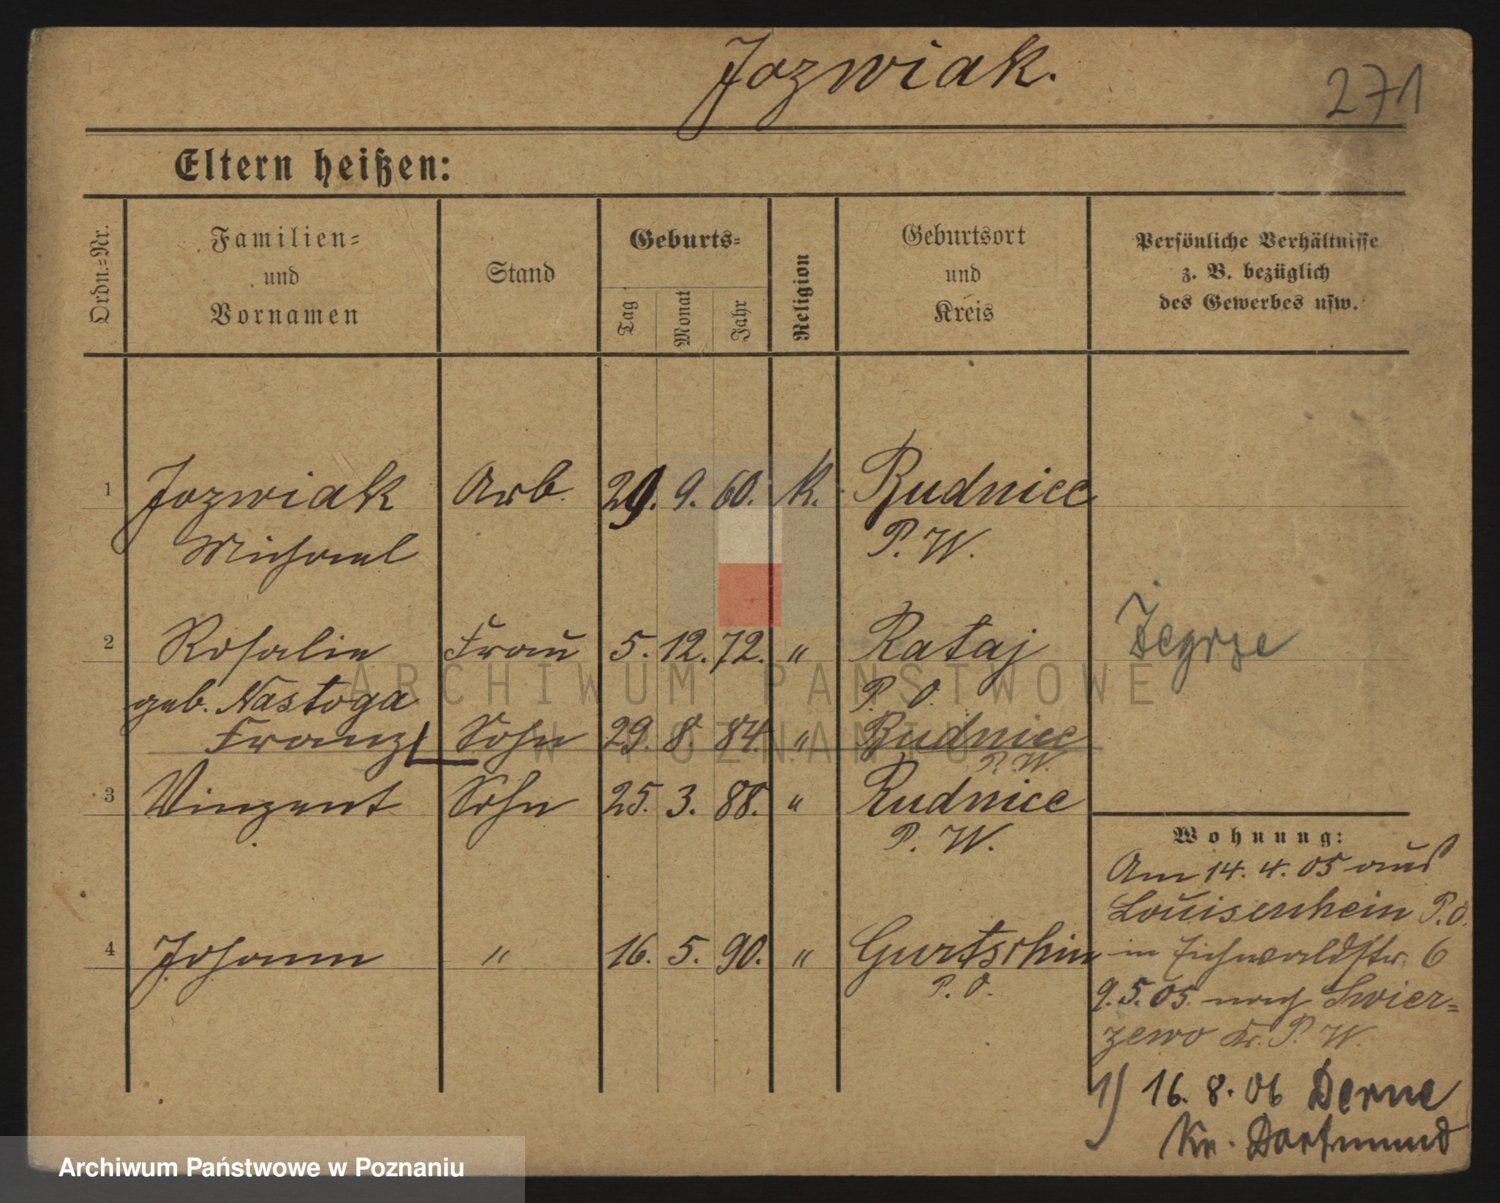 Jozwiak.
271
Eltern heißen:
Ordn.-Nr.
Familien-
und
Vornamen
Stand
Geburts-
Tag
Monat
Jahr
Religion
Geburtsort
und
Kreis
Persönliche Verhältnisse
z. B. bezüglich
des Gewerbes usw.
1 Jozwiak Arb. 29. 9. 60. K. Rudnicc
Michael P. W.
2 Rosalie Frau 5. 12. 72. " Rataj
geb. Nastoga P. O.
Franz Sohn 29. 8. 84. " Rudnicc
P. W.
3 Vinzent Sohn 25. 3. 88. " Rudnicc
P. W.
4 Johann " 16. 5. 90. " Gurtschin
P. O.
Żegrze
Wohnung:
Am 14. 4. 05 aus
Louisenhein P. O.
in Eichwaldstr. 6
9. 5. 05. nach Swier-
zewo Kr. P. W.
1) 16. 8. 06 Derne
Kr. Dortmund
ARCHIWUM PAŃSTWOWE
W POZNANIU
Archiwum Państwowe w Poznaniu